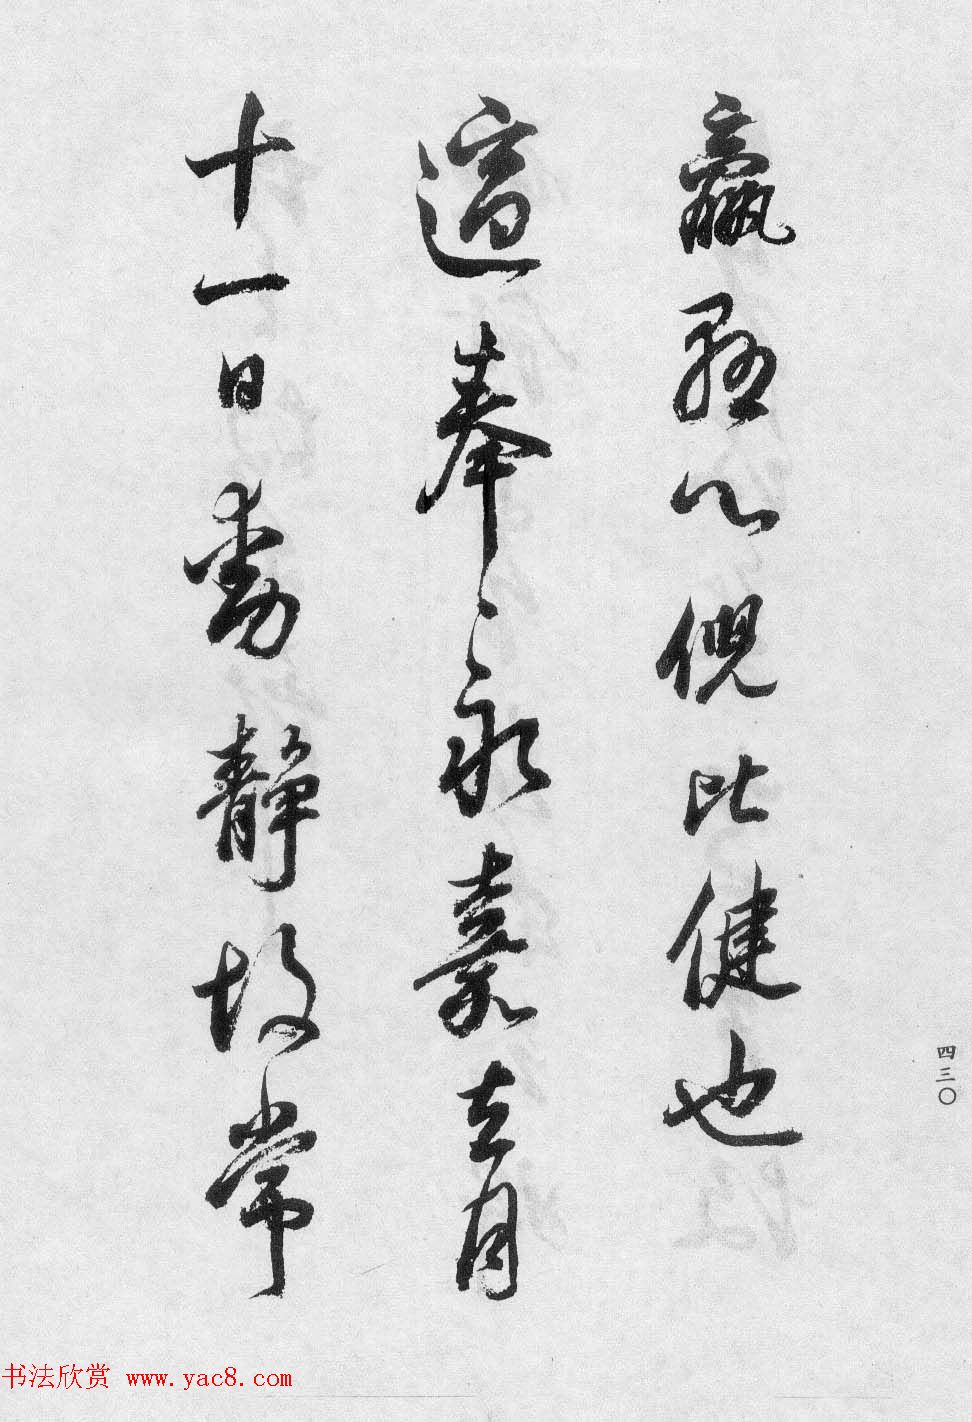 羸 俔比健也
適奉永嘉去月
十一日動靜故常
四三〇
书法欣赏 www.yac8.com